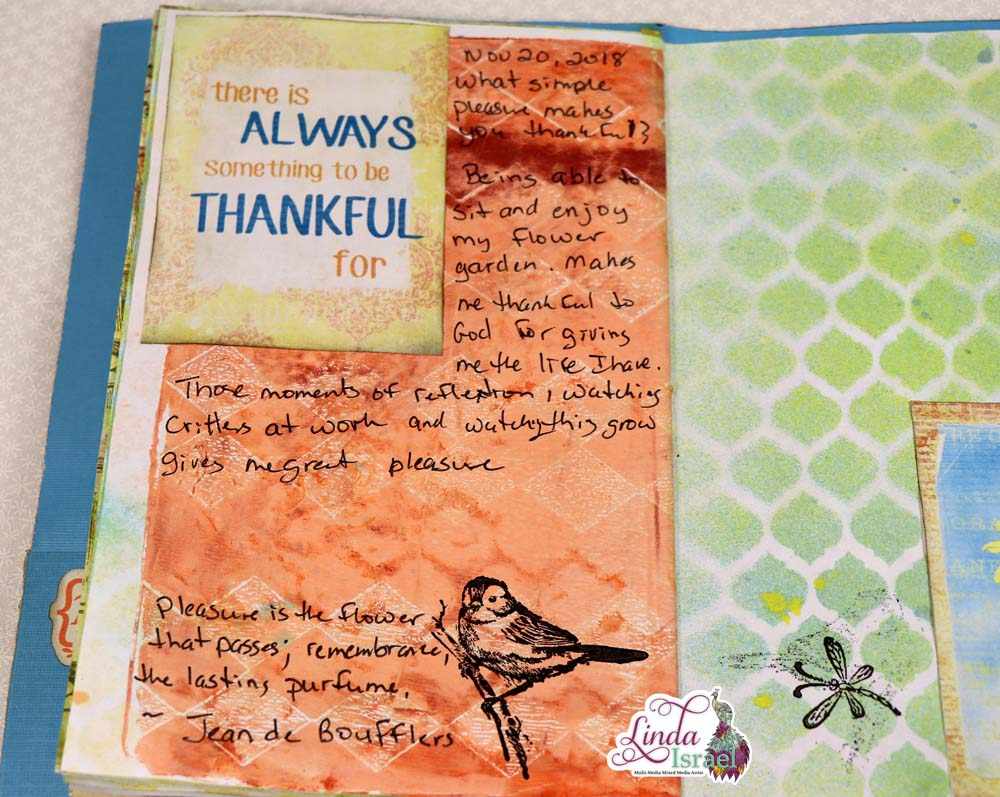 there is
ALWAYS
something to be
THANKFUL
for
Nov 20, 2018
What simple
pleasure makes
you thankful?
Being able to
sit and enjoy
my flower
garden. Makes
me thankful to
God for giving
me the life I have.
Those moments of reflextion, watching
Critters at work and watching this grow
gives me great pleasure
Pleasure is the flower
that passes; remembrance,
the lasting purfume.
~ Jean de Boufflers
Linda
Israel
Multi-Media Mixed Media Artist